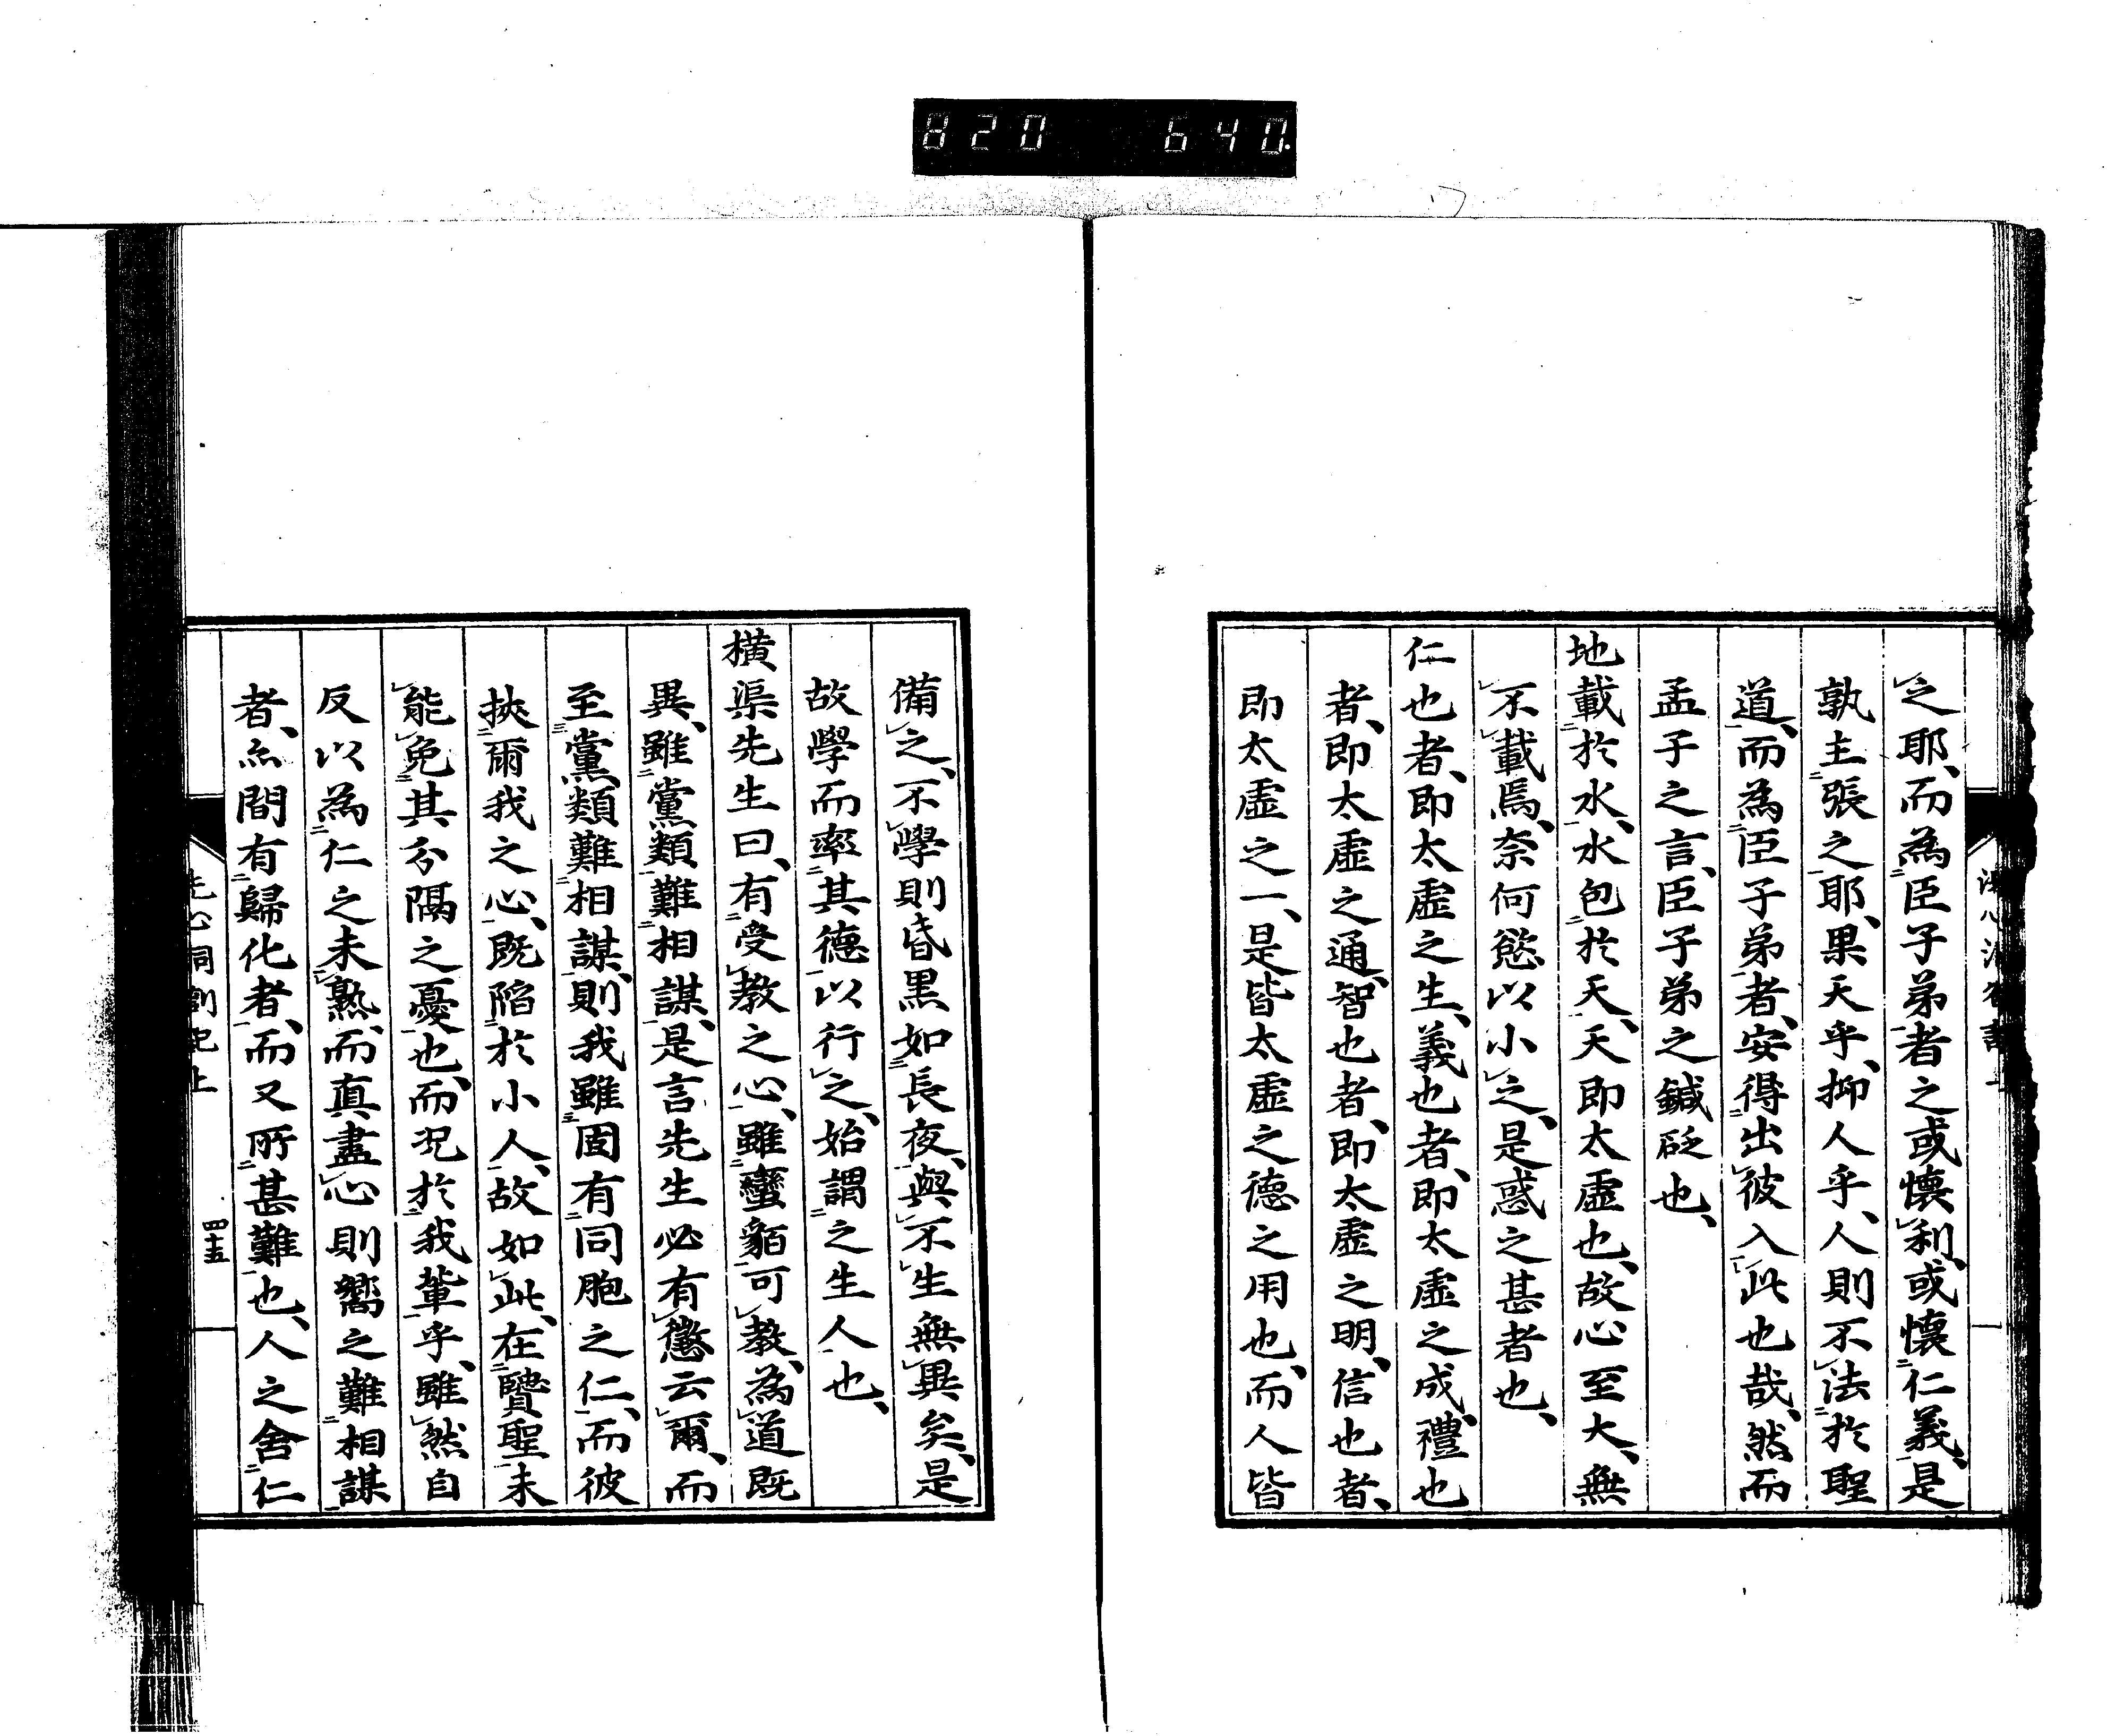 820 640.
之耶、而為臣子弟者之或懷利、或懷仁義、是
孰主張之耶、果天乎、抑人乎、人則不法於聖
道、而為臣子弟者、安得出彼入此也哉、然而
孟子之言、臣子弟之鍼砭也、
地載於水、水包於天、天即太虛也、故心至大、無
不載焉、奈何慾以小之、是惑之甚者也、
仁也者、即太虛之生、義也者、即太虛之成、禮也
者、即太虛之通、智也者、即太虛之明、信也者、
即太虛之一、是皆太虛之德之用也、而人皆
備之、不學則昏黑如長夜、與不生無異矣、是
故學而率其德以行之、始謂之生人也、
橫渠先生曰、有受教之心、雖蠻貊可教、為道既
異、雖黨類難相謀、是言先生必有懲云爾、而
至黨類難相謀、則我雖固有同胞之仁、而彼
挾爾我之心、既陷於小人、故如此、在賢聖未
能免其分隔之憂也、而況於我輩乎、雖然自
反以為仁之未熟、而真盡心則嚮之難相謀
者、亦間有歸化者、而又所甚難也、人之舍仁
洗心洞劄記上
四十五